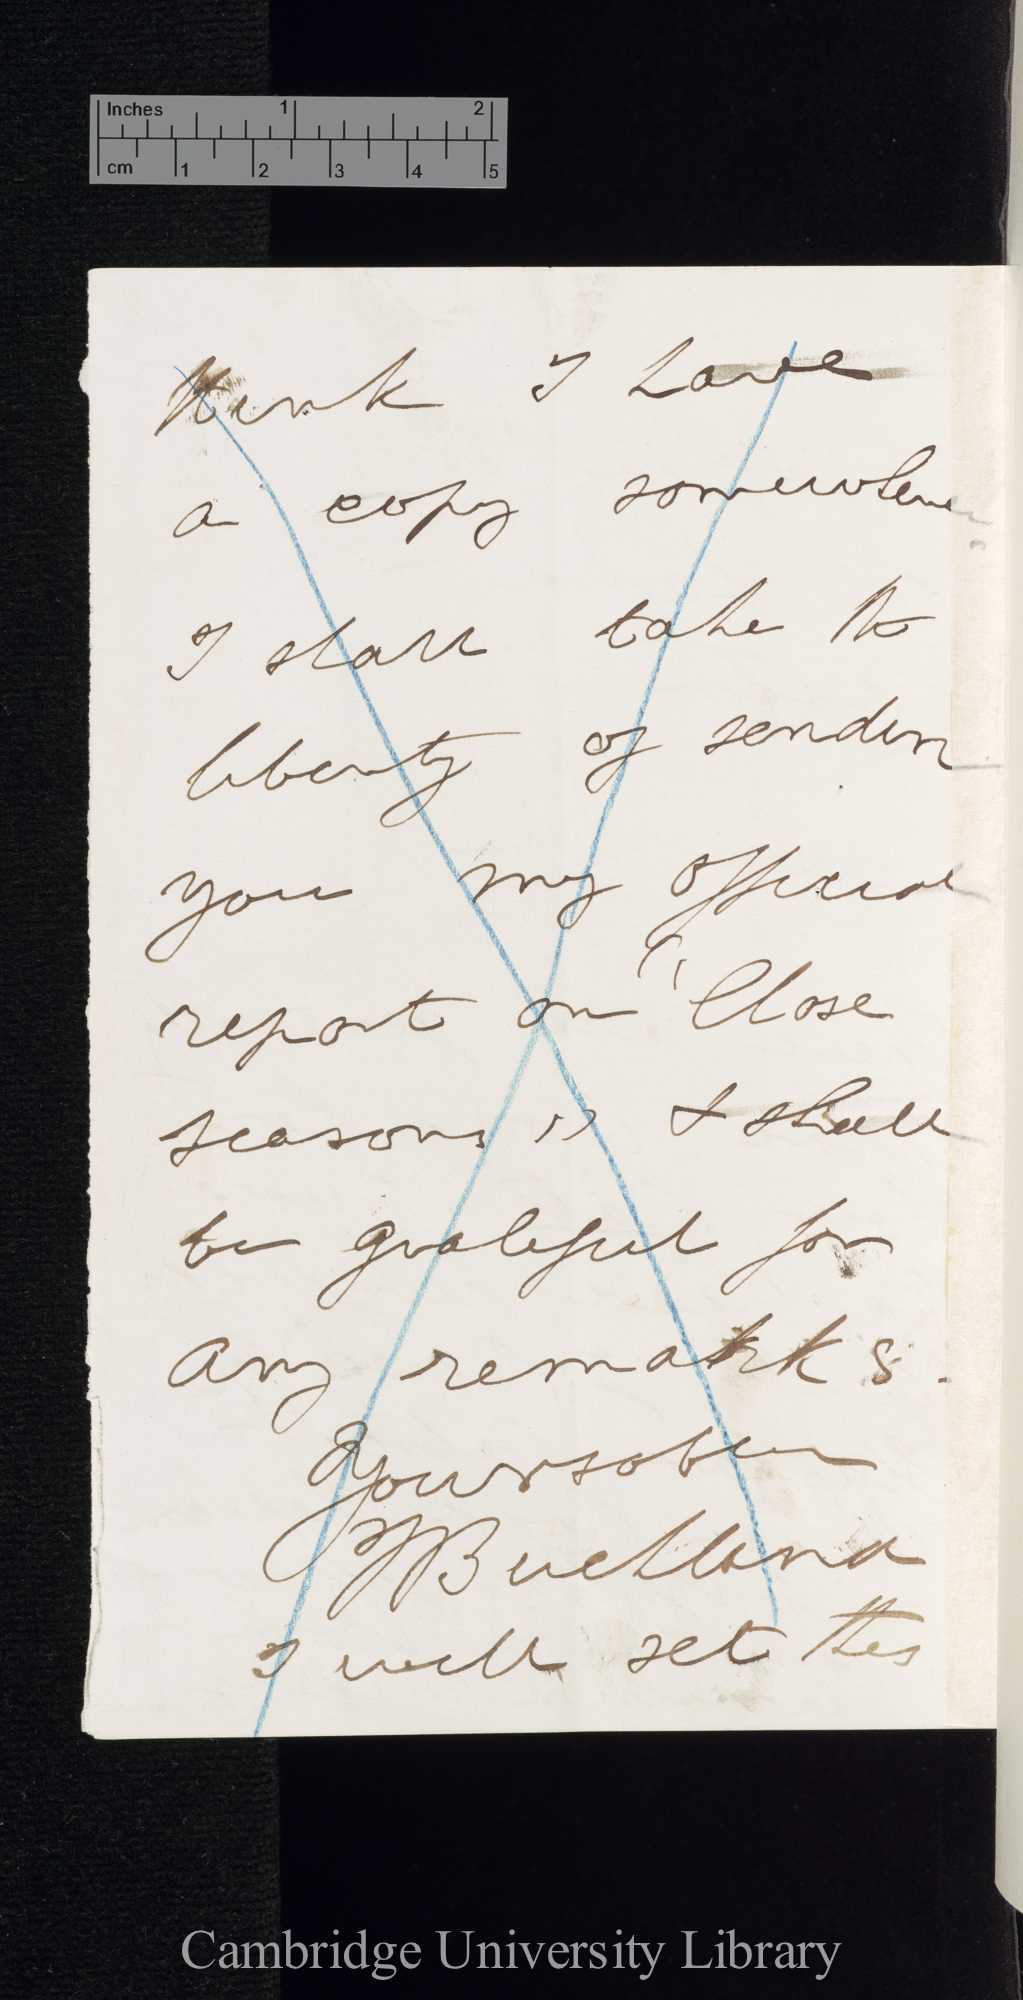 Inches 1 2
cm 1 2 3 4 5
think I have
a copy somewhere
I shall take the
liberty of sending
you my official
report on "Close
seasons" & shall
be grateful for
any remarks.
Yours
F Buckland
I will set this
Cambridge University Library